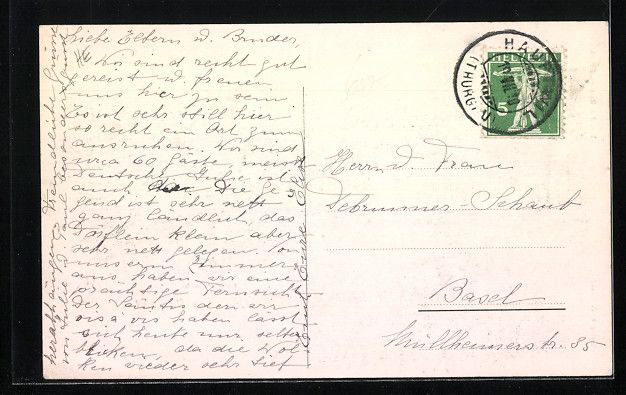 Liebe Eltern u. Bruder,
Wir sind recht gut
gereist u. freuen
uns hier zu sein.
Es ist sehr still hier
so recht ein Ort zum
ausruhen. Wir sind
circa 60 Gäste, meist
Deutsche, ist
auch hier. Die Ge-
gend ist sehr nett
ganz ländlich, das
Dörflein klein aber
sehr nett gelegen. Von
unserm Zimmer
aus haben wir eine
prächtige Fernsicht
Der Säntis den wir
vis à vis haben lässt
sich heute nur selten
blicken, da die Wol-
ken wieder sehr tief
herabhängen. Freundliche Grüsse
von Julie u. Paul besonders
Ernst Eure Elsa
HELVETIA
5
HAUP
(THURG)
Herrn u. Frau
Debrunner-Schaub
Basel
Müllheimerstr. 85